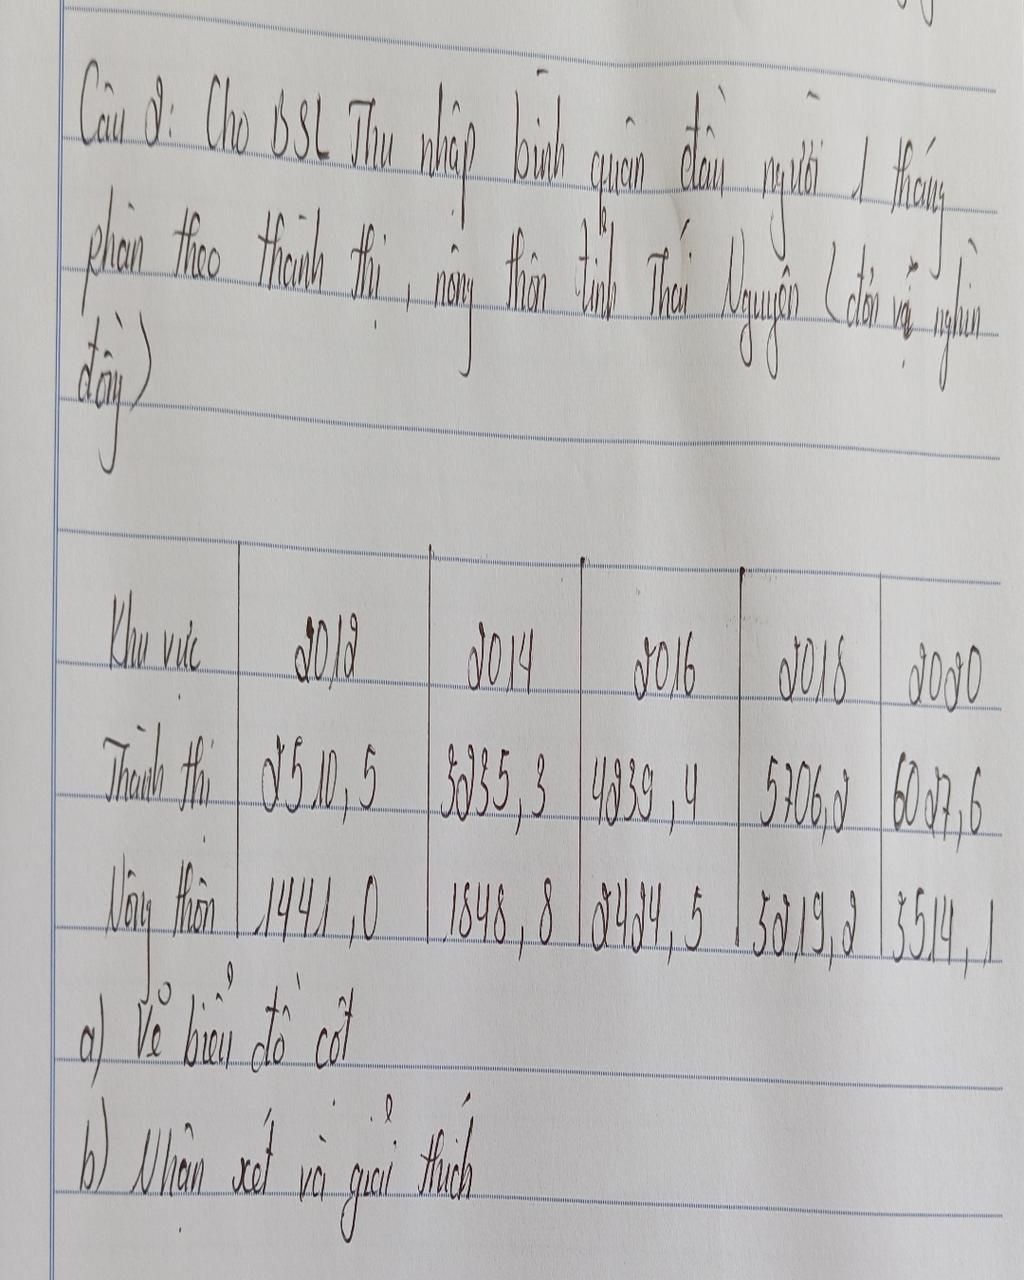 Câu 2: Cho BSL Thu nhập bình quân đầu người 1 tháng
phân theo thành thị, nông thôn tỉnh Thái Nguyên (đơn vị nghìn
đồng)
Khu vực 2012 2014 2016 2018 2020
Thành thị 2510,5 3235,3 4239,4 5706,2 6027,6
Nông thôn 1441,0 1848,8 2424,5 3219,2 3514,1
a) Vẽ biểu đồ cột
b) Nhận xét và giải thích